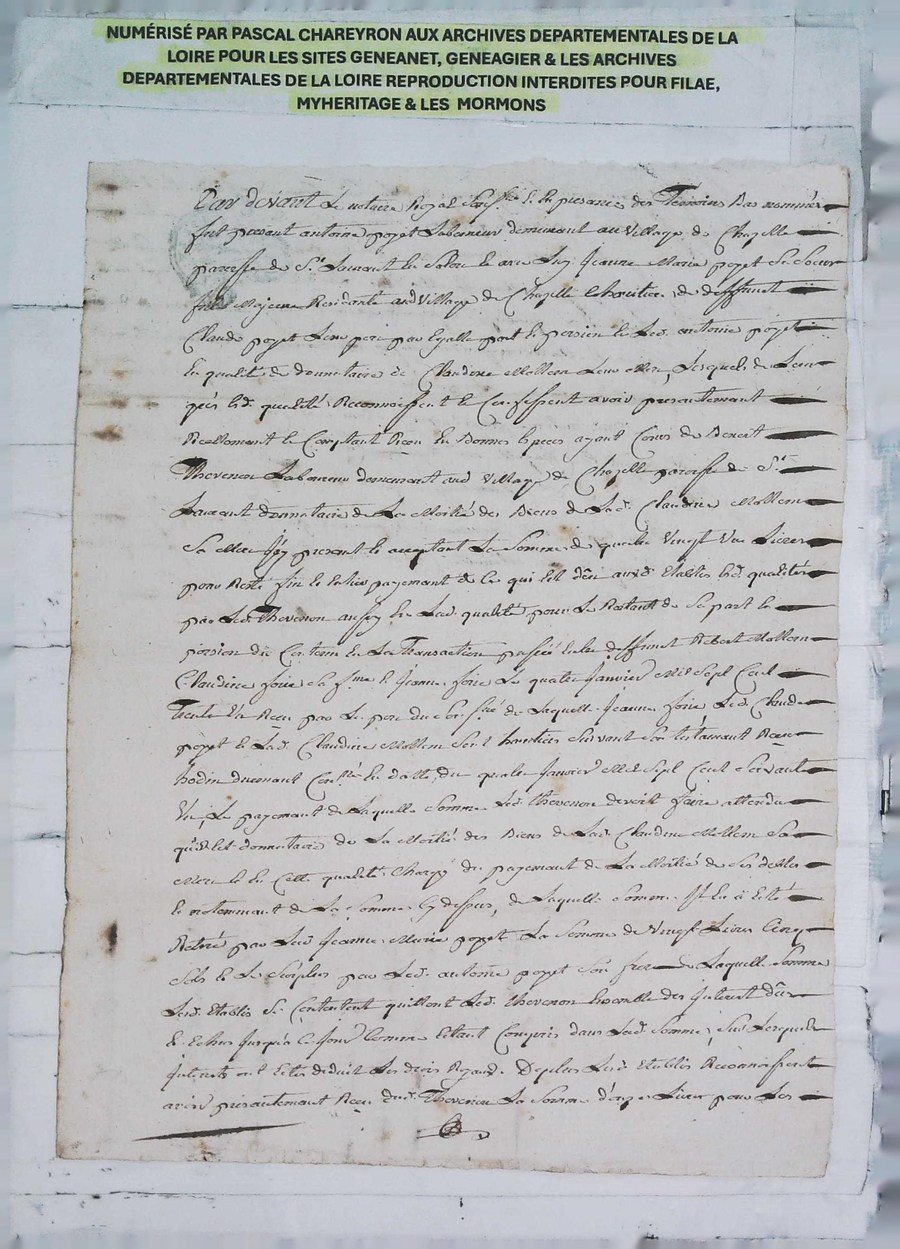 NUMÉRISÉ PAR PASCAL CHAREYRON AUX ARCHIVES DEPARTEMENTALES DE LA
LOIRE POUR LES SITES GENEANET, GENEAGIER & LES ARCHIVES
DEPARTEMENTALES DE LA LOIRE REPRODUCTION INTERDITES POUR FILAE,
MYHERITAGE & LES MORMONS
Par devant Le notaire Royal & la presance des Temoins Bas nommés
fut present antoine poyet Laboureur demeurant au Village de Chazelle
paroisse de St Laurant Jeanne Marie poyet Sa Soeur
fille Majeure Residante aud Village de Chazelle de deffunt
Claude poyet Leur pere par Egalle part & portion & Led. antoine poyet
En qualité de donnataire de Claudine Mollem Leur Mere, Lesquels de Leur
gré Ed. qualité Reconnoissent & Confessent avoir presantement
Reellement & Comptant Receu En Bonnes Espèces ayant Cours de Benoit
Thevenon Laboureur demeurant aud Village de Chazelle paroisse de St
Laurant donnataire de La Moitié des Biens de Lad. Claudine Mollem
Sa Mere Icy present & acceptant La Somme de quatre Vingt Une Livres
pour Reste fin & Entier payement de Ce qui Est dû auxd Etablis Ed. qualités
par Led. Thevenon aussy En Lad. qualité pour Le Restant de Sa part &
portion du Contenu En La Transaction passée Entre deffunt Mollem
Claudine foire Sa fme & Jeanne foire Le quatre Janvier Mil Sept Cent
Trente Un Receu par de Laquelle Jeanne foire Led. Claude
poyet & Lad. Claudine Mollem Sont heritiers Suivant Son testamant Receu
En datte du quatre Janvier Mil Sept Cent
Un, Le payement de Laquelle Somme Led. Thevenon devoit faire attendu
qu'il Est donnataire de La Moitié des Biens de Lad. Claudine Mollem Sa
Mere & En Cette qualité Chargé du payement de La Moitié de Ses dettes
& notemmant de La Somme Cy dessus, de Laquelle Somme Il En a Eté
Retiré par Lad. Jeanne Marie poyet La Somme de Vingt Livres Cinq
Sols & Le Surplus par Led. antoine poyet Son frere de Laquelle Somme
Lesd. Etablis Se Contentent quittent Led. Thevenon des Interest dûs
& Echus Jusques à Ce Jour Comme Etant Compris dans Lad. Somme, Sur Lesquels
Interets ont Etés deduit Les droits Royaux. De plus Lesd. Etablis Reconnoissent
avoir presantemant Receu dud. Thevenon La Somme d'onze Livres pour Les